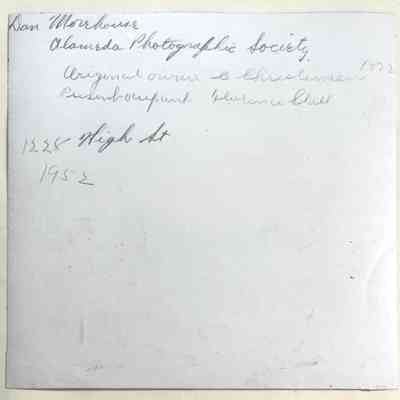 Dan Morehouse
Alameda Photographic Society
Original owner C Christensen
Present occupant Florence
1228 High St
1952